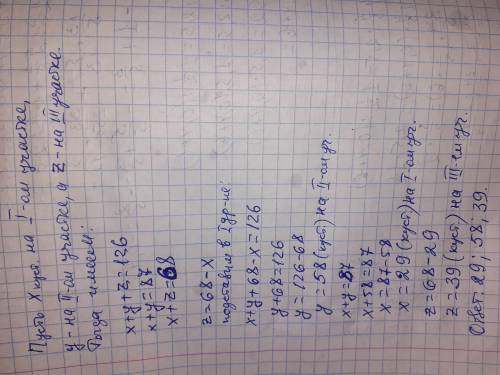 Пусть x куст. на I-ом участке,
y - на II-ом участке, а z - на III участке.
Тогда имеем:
x+y+z=126
x+y=87
x+z=68
z=68-x
подставим в I ур-ие:
x+y+68-x=126
y+68=126
y=126-68
y=58 (куст.) на II-ом уч.
x+y=87
x+58=87
x=87-58
x=29 (куст.) на I-ом уч.
z=68-29
z=39 (куст.) на III-ем уч.
Ответ: 29; 58; 39.